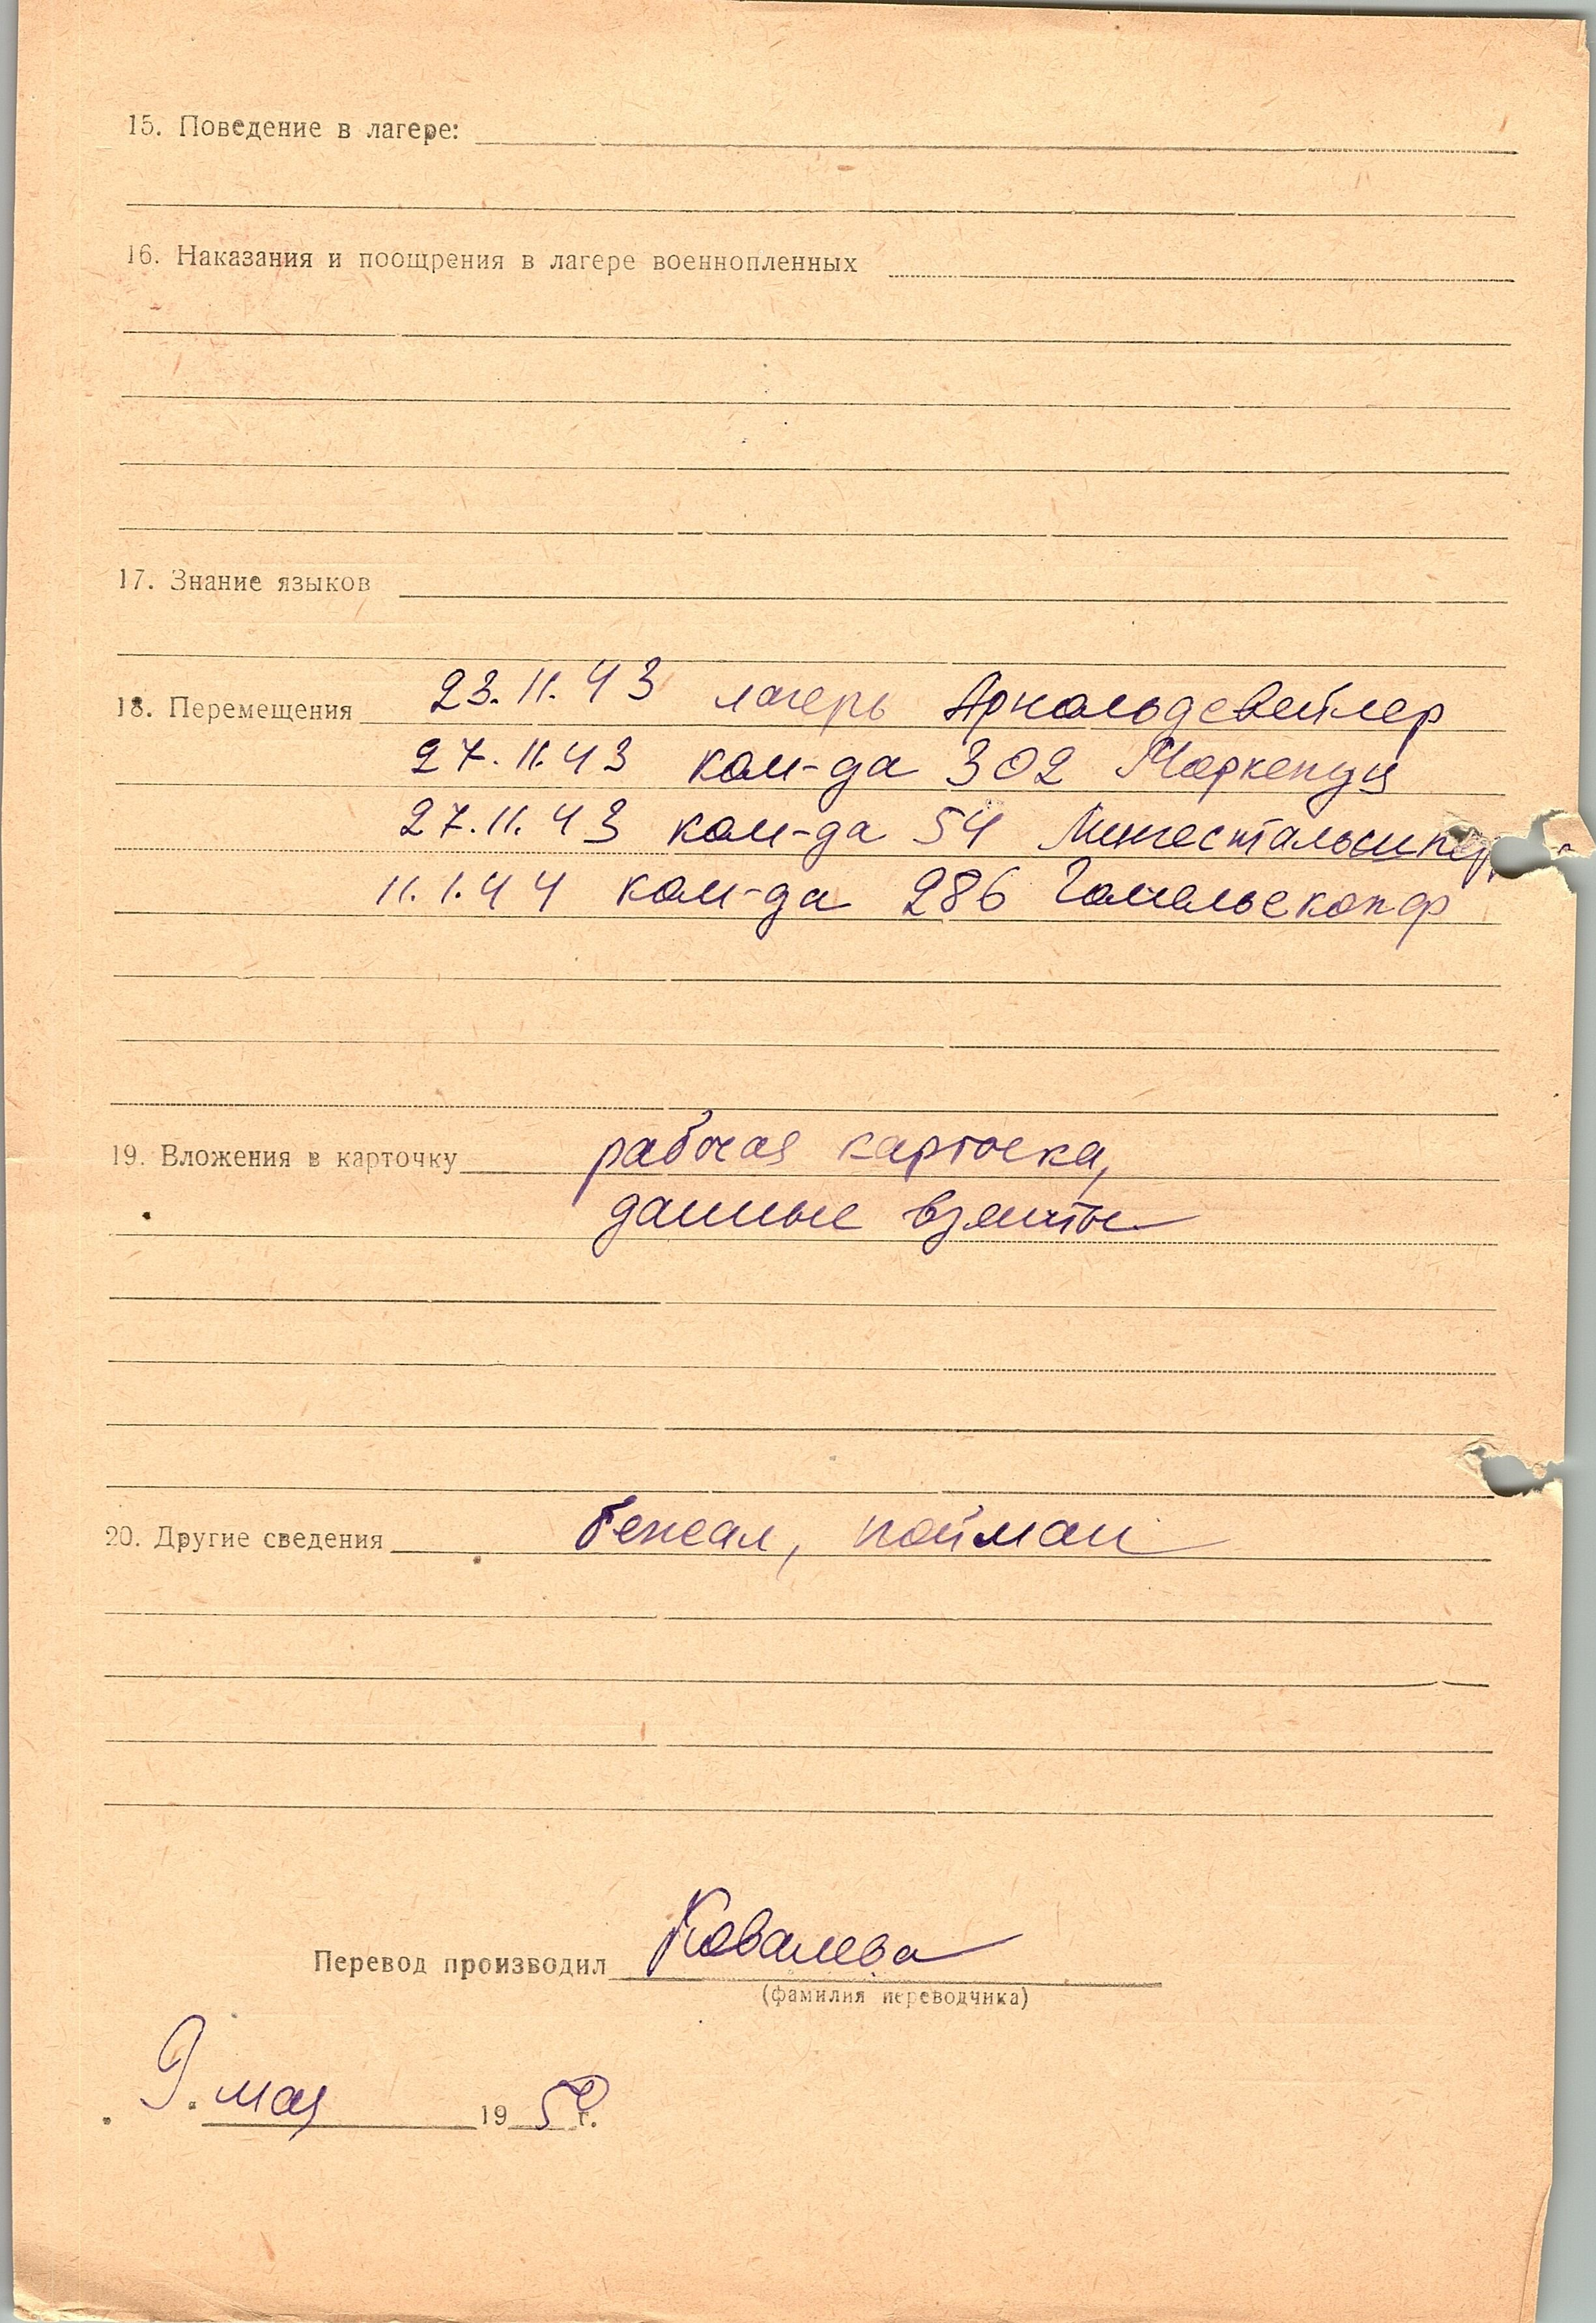 15. Поведение в лагере:
16. Наказания и поощрения в лагере военнопленных
17. Знание языков
18. Перемещения 23.11.43 лагерь Арнольдсвейлер
27.11.43 ком-да 302 Маркенуц
27.11.43 ком-да 54
11.1.44 ком-да 286
19. Вложения в карточку рабочая карточка,
данные взяты
20. Другие сведения бежал, пойман
Перевод производил Ковалева
(фамилия переводчика)
9. мая 1950 г.